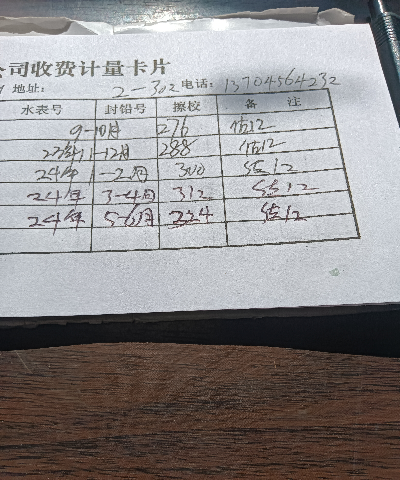 公司收费计量卡片
地址: 2-302 电话: 13704564232
水表号 封铅号 擦校 备 注
9-10月 276 估12
23年11-12月 288 估12
24年 1-2月 300 估12
24年 3-4月 312 估12
24年 5-6月 324 估12